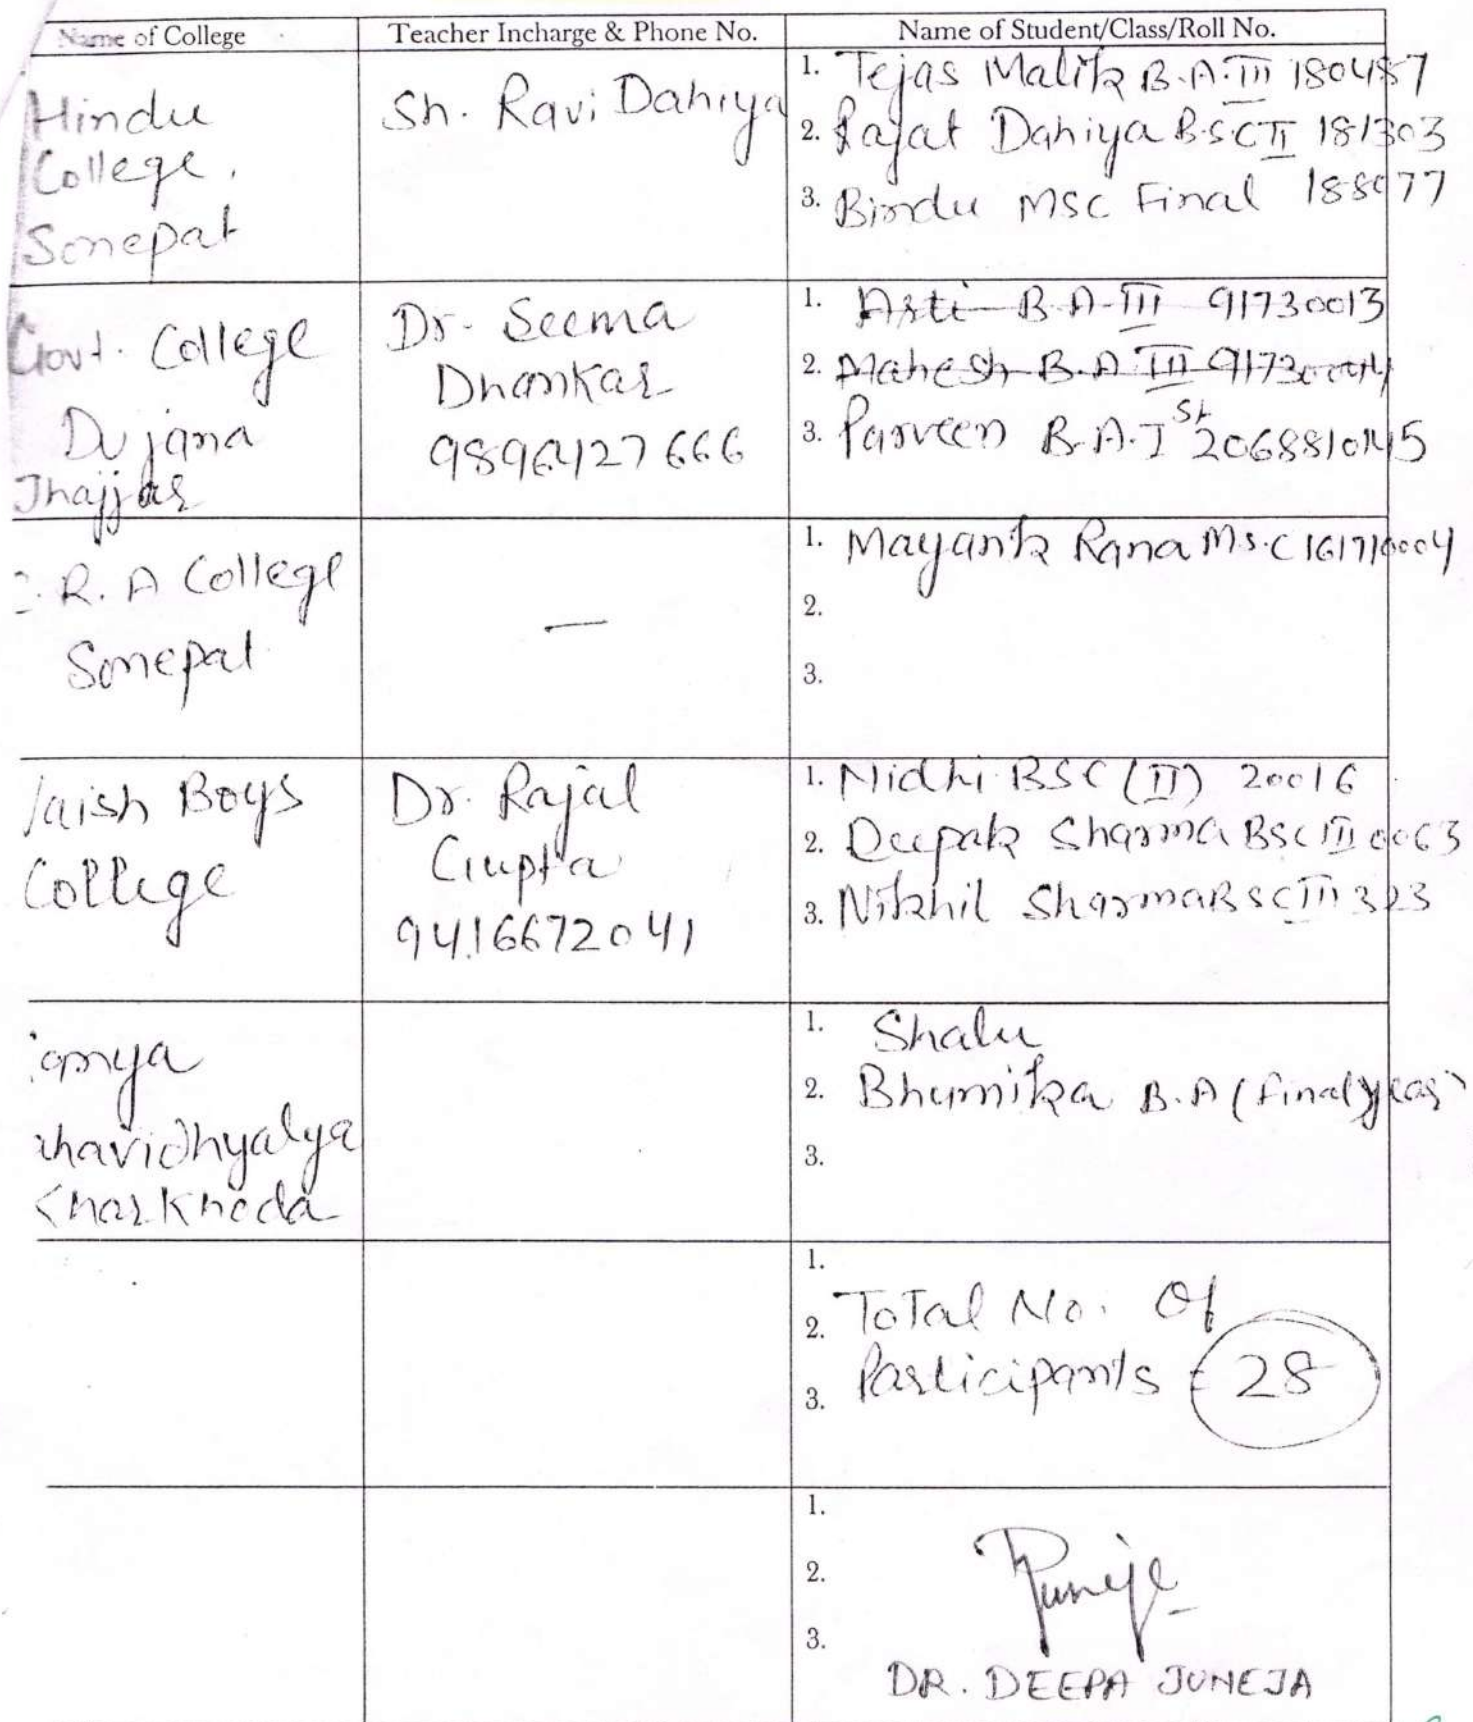 Name of College Teacher Incharge & Phone No. Name of Student/Class/Roll No.
Hindu
College,
Sonepat
Sh. Ravi Dahiya
1. Tejas Malik B.A.III 180487
2. Rajat Dahiya B.SC II 181303
3. Bindu MSC Final 188077
Govt. College
Dujana
Jhajjar
Dr. Seema
Dhankar
9896427666
1. Arti B.A-III 91730013
2. Mahesh B.A III
3. Parveen B.A.I st
R. A College
Sonepat
—
1. Mayank Rana Ms.C
2.
3.
Vaish Boys
College
Dr. Rajal
Gupta
9416672041
1. Nidhi BSC (II) 20016
2. Deepak Sharma BSC III 0063
3. Nikhil Sharma BSC III 323
anya
havidhyalya
Kharkhoda
1. Shalu
2. Bhumika B.A (final year)
3.
1.
2. Total No. Of
3. Participants = 28
1.
2. Juneja
3.
DR. DEEPA JUNEJA